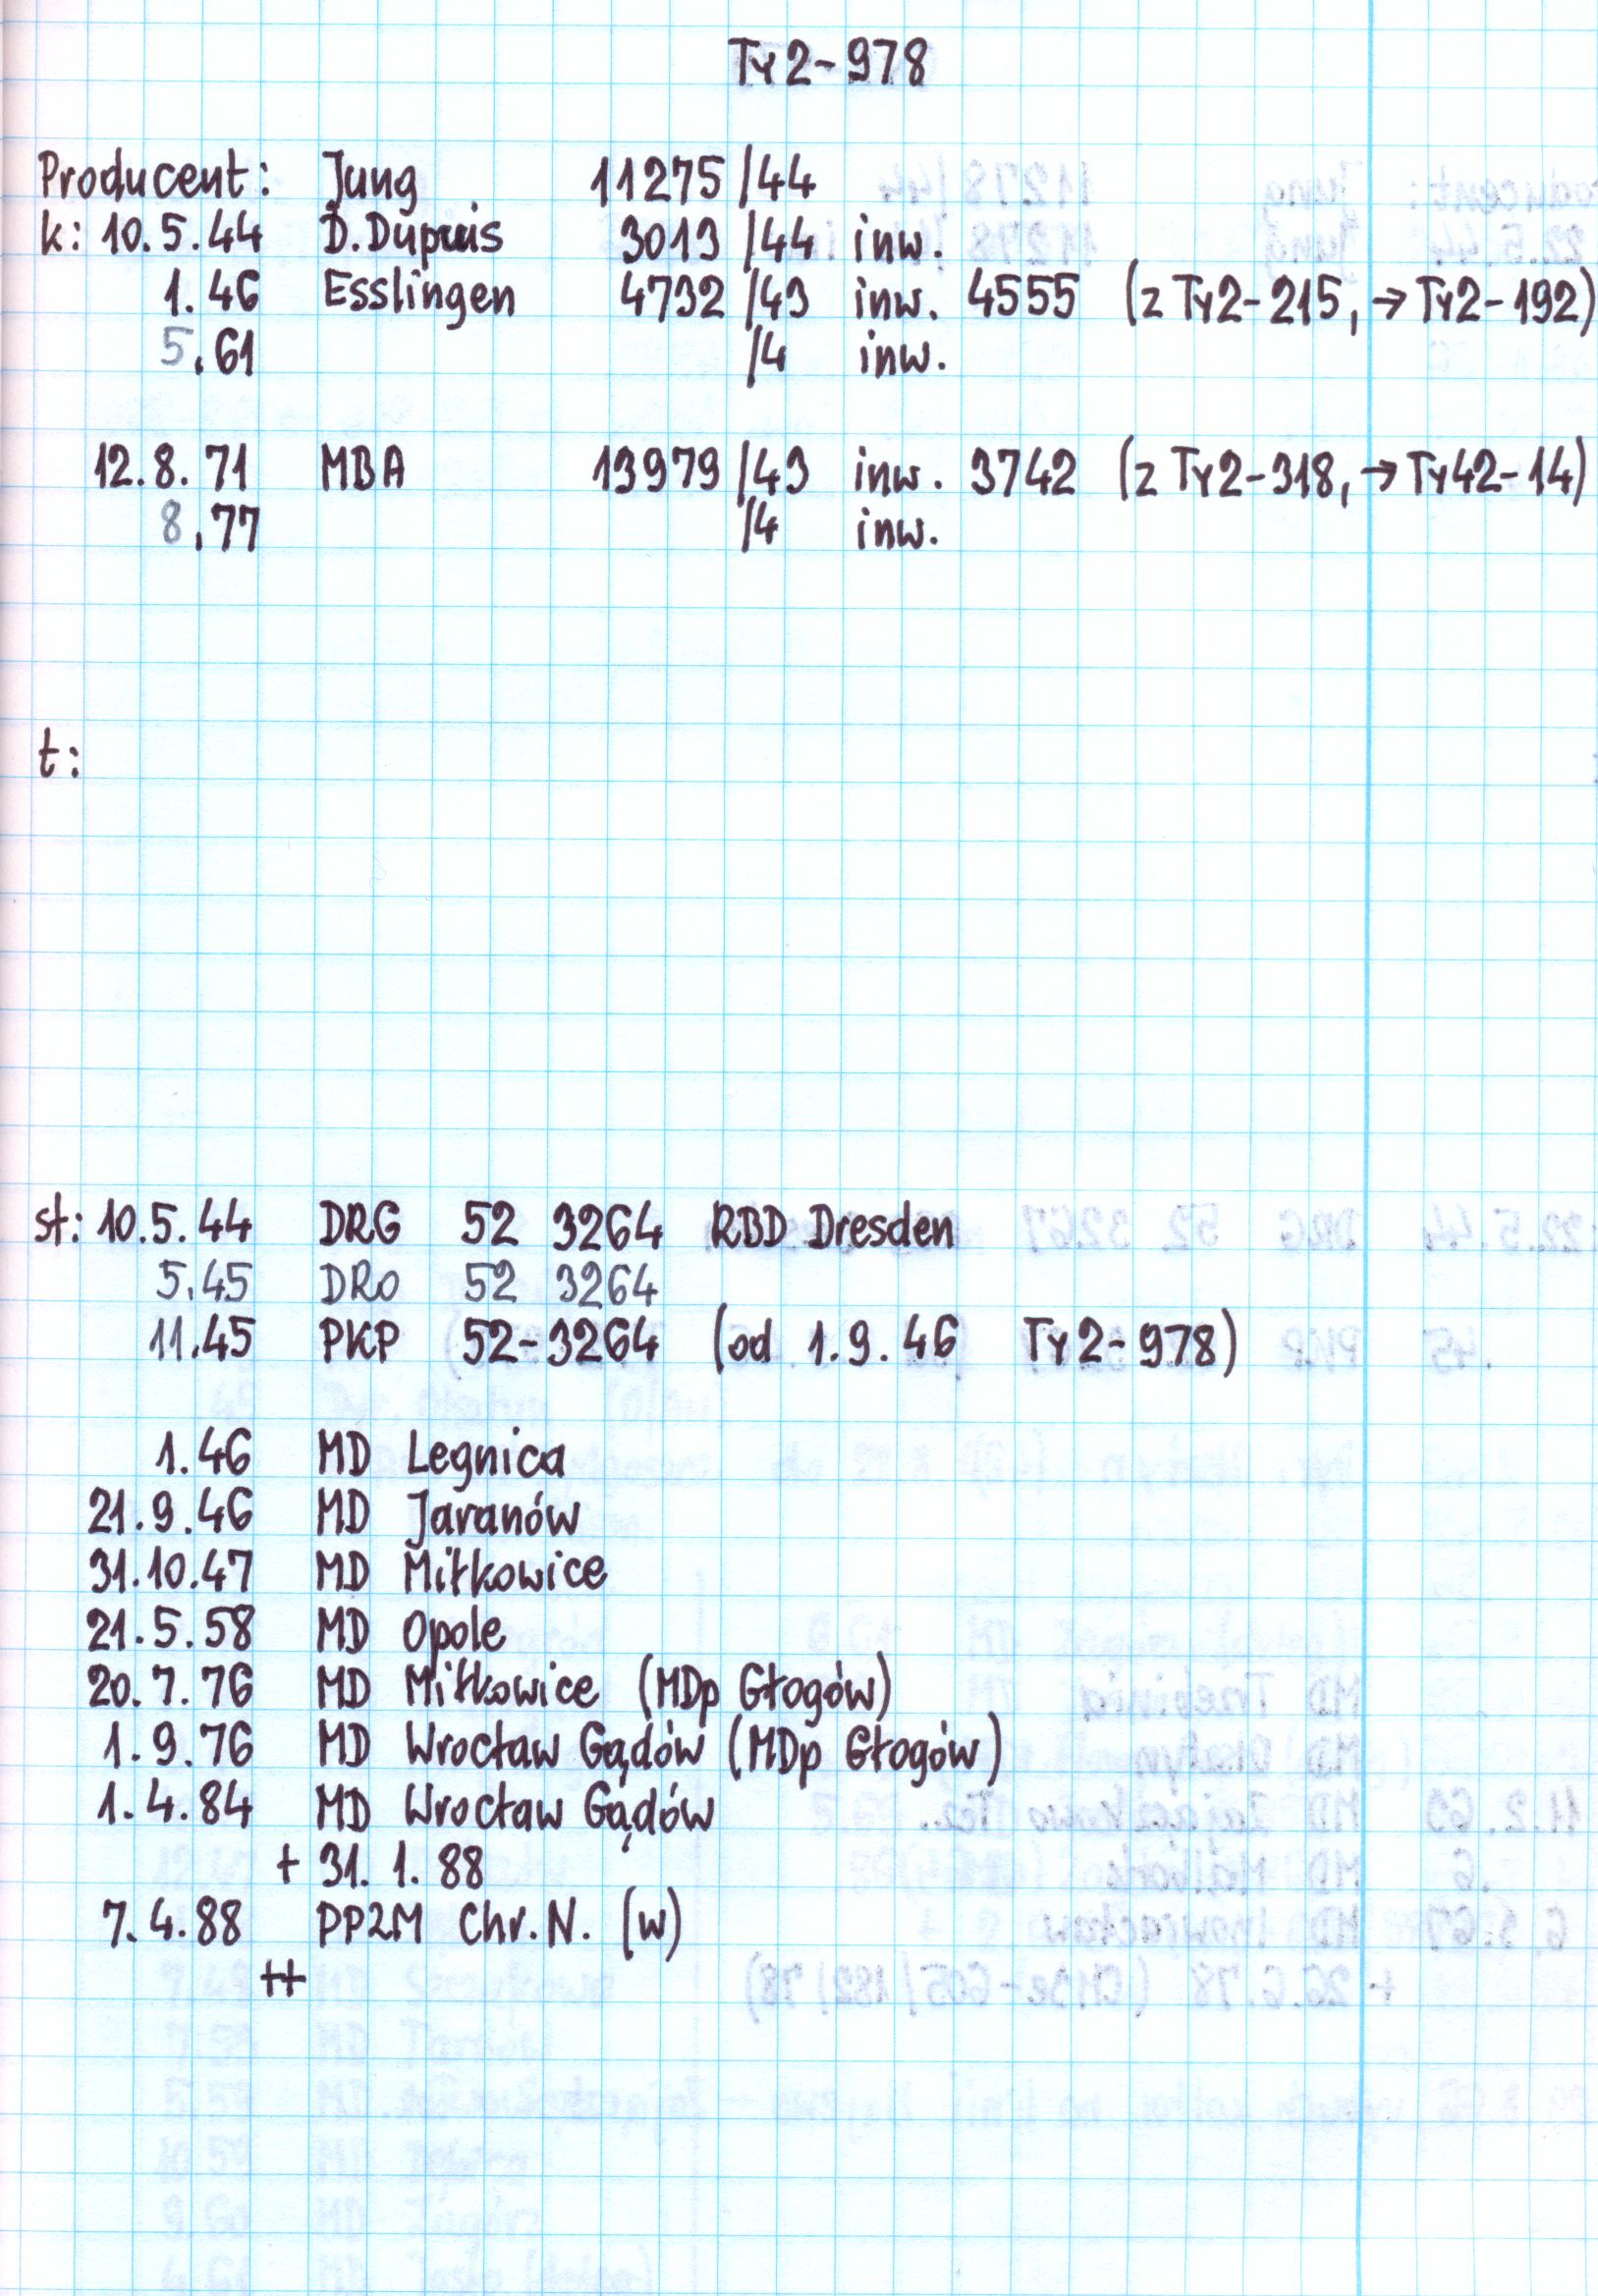 Ty2-978
Producent: Jung 11275/44
k: 10.5.44 D.Dupuis 3013/44 inw.
1.46 Esslingen 4732/43 inw. 4555 (z Ty2-215, → Ty2-192)
5.61 /4 inw.
12.8.71 MBA 13979/43 inw. 3742 (z Ty2-318, → Ty42-14)
8.77 /4 inw.
t:
st: 10.5.44 DRG 52 3264 RBD Dresden
5.45 DRo 52 3264
11.45 PKP 52-3264 (od 1.9.46 Ty2-978)
1.46 MD Legnica
21.9.46 MD Jaranów
31.10.47 MD Miłkowice
21.5.58 MD Opole
20.7.76 MD Miłkowice (MDp Głogów)
1.9.76 MD Wrocław Gądów (MDp Głogów)
1.4.84 MD Wrocław Gądów
+ 31.1.88
7.4.88 PP2M Chr.N. (w)
++